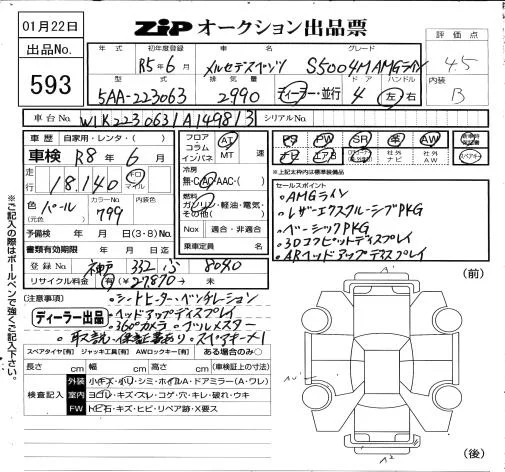 01月22日
出品No.
593
ZIP オークション出品票
年式 初年度登録 車名 グレード
R5年6月 メルセデスベンツ S5004M AMGライン
型式 排気量 ドア ハンドル
5AA-223063 2990 ディーラー・並行 4 左・右
評価点
4.5
内装
B
車台No. W1K2230631A149813 シリアルNo.
車歴 自家用・レンタ・( )
車検 R8年6月
走行 18,140 キロ マイル
色 パール (元色) カラーNo. 799 内装色
予備検 年 月 日(3・8)No.
書類有効期限 年 月 日迄
登録No. 神戸 332 8040
リサイクル料金 有(¥27870) → 未
フロア コラム インパネ AT MT 速
冷房 無・CAC・AAC・( )
燃料 ガソリン・軽油・電気・その他( )
Nox 適合・非適合
乗車定員 名
PS PW SR 革 AW
ナビ エアB 社外ナビ 社外AW
※上記太枠内は標準装備品
セールスポイント
。AMGライン
。レザーエクスクルーシブPKG
。ベーシックPKG
。3Dコクピットディスプレイ
。ARヘッドアップディスプレイ
(注意事項)
ディーラー出品
。シートヒーター・ベンチレーション
。ヘッドアップディスプレイ
。360°カメラ 。ブルメスター
。取説、保証書あり 。スペアキー×1
スペアタイヤ[有] ジャッキ工具[有] AWロックキー[有] ある場合のみ○
長さ cm 幅 cm 高さ cm (車検証上の寸法)
検査記入
外装 小キズ・小凹・シミ・ホイルA・ドアミラー(A・ワレ)
室内 ヨゴレ・キズ・スレ・コゲ・穴・キレ・破れ・ウキ
FW トビ石・キズ・ヒビ・リペア跡・X要ス
※ご記入の際はボールペンで強くご記入下さい。
(前)
A1
A2
(後)